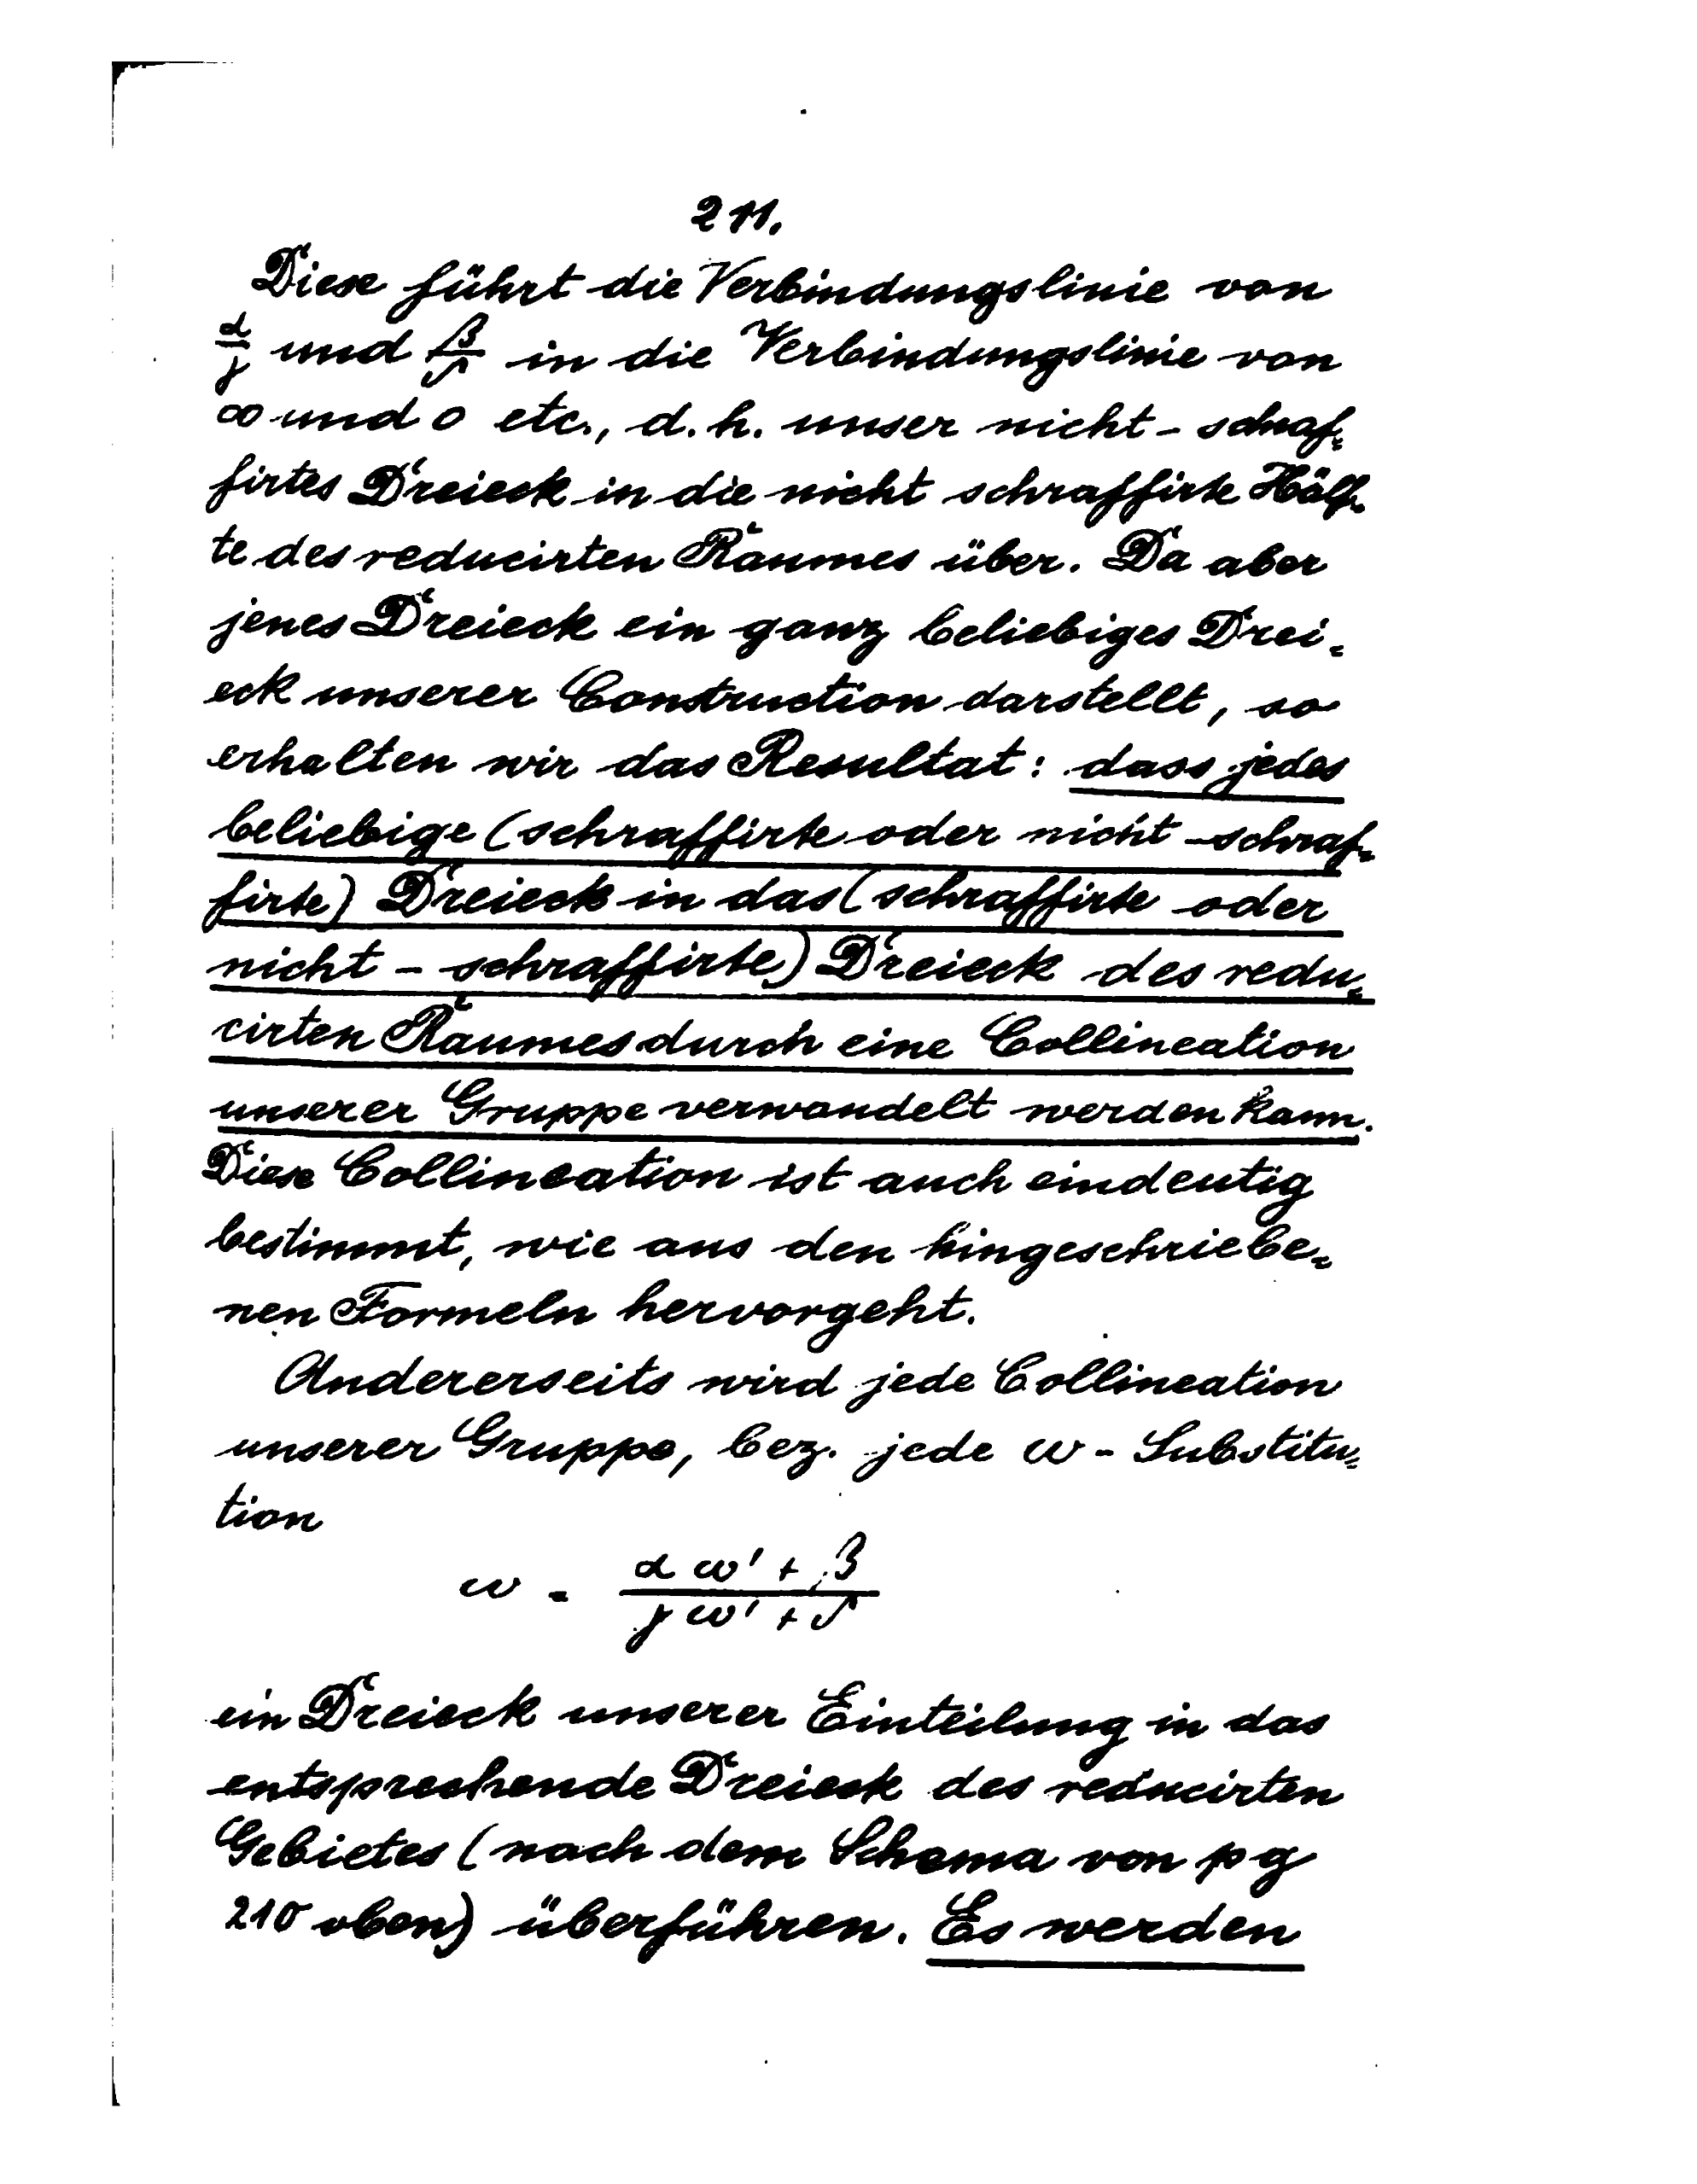 211.
Diese führt die Verbindungslinie von
α/γ und β/δ in die Verbindungslinie von
∞ und 0 etc., d. h. unser nicht-schraf-
firtes Dreieck in die nicht schraffirte Hälf-
te des reducirten Raumes über. Da aber
jenes Dreieck ein ganz beliebiges Drei-
eck unserer Construction darstellt, so
erhalten wir das Resultat: dass jedes
beliebige (schraffirte oder nicht-schraf-
firte) Dreieck in das (schraffirte oder
nicht-schraffirte) Dreieck des redu-
cirten Raumes durch eine Collineation
unserer Gruppe verwandelt werden kann.
Diese Collineation ist auch eindeutig
bestimmt, wie aus den hingeschriebe-
nen Formeln hervorgeht.
Andererseits wird jede Collineation
unserer Gruppe, bez. jede ω-Substitu-
tion
ω = (α ω' + β)/(γ ω' + δ)
ein Dreieck unserer Einteilung in das
entsprechende Dreieck des reducirten
Gebietes (nach dem Schema von pg
210 oben) überführen. Es werden